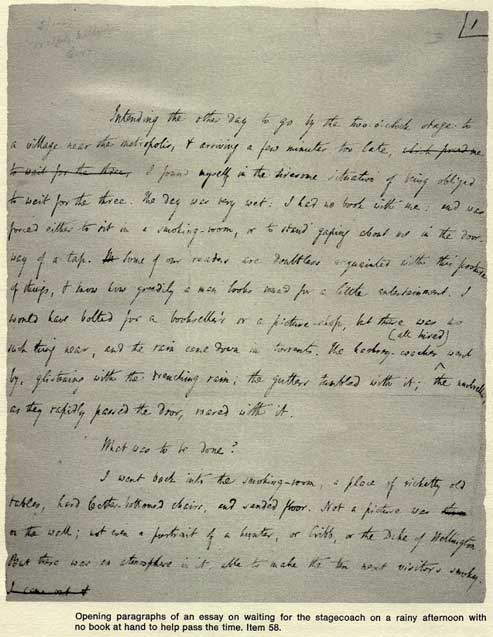 1
Intending the other day to go by the two o'clock stage to
a village near the metropolis, & arriving a few minutes too late, which forced me
to wait for the three, I found myself in the tiresome situation of being obliged
to wait for the three. The day was very wet: I had no book with me: and was
forced either to sit in a smoking-room, or to stand gaping about me in the door-
way of a tap. Some of our readers are doubtless acquainted with this posture
of things, & know how greedily a man looks round for a little entertainment. I
would have bolted for a bookseller's or a picture-shop, but there was no
(all hired)
such thing near, and the rain came down in torrents. The hackney-coaches went
by, glistening with the drenching rain; the gutters tumbled with it; the umbrellas,
as they rapidly passed the door, roared with it.
What was to be done?
I went back into the smoking-room, a place of ricketty old
tables, hard leather-bottomed chairs, and sanded floor. Not a picture was
on the wall; not even a portrait of a hunter, or Cribb, or the Duke of Wellington.
But there was an atmosphere in it, able to make the ten next visitors smoky.
I came out &
Opening paragraphs of an essay on waiting for the stagecoach on a rainy afternoon with
no book at hand to help pass the time. Item 58.